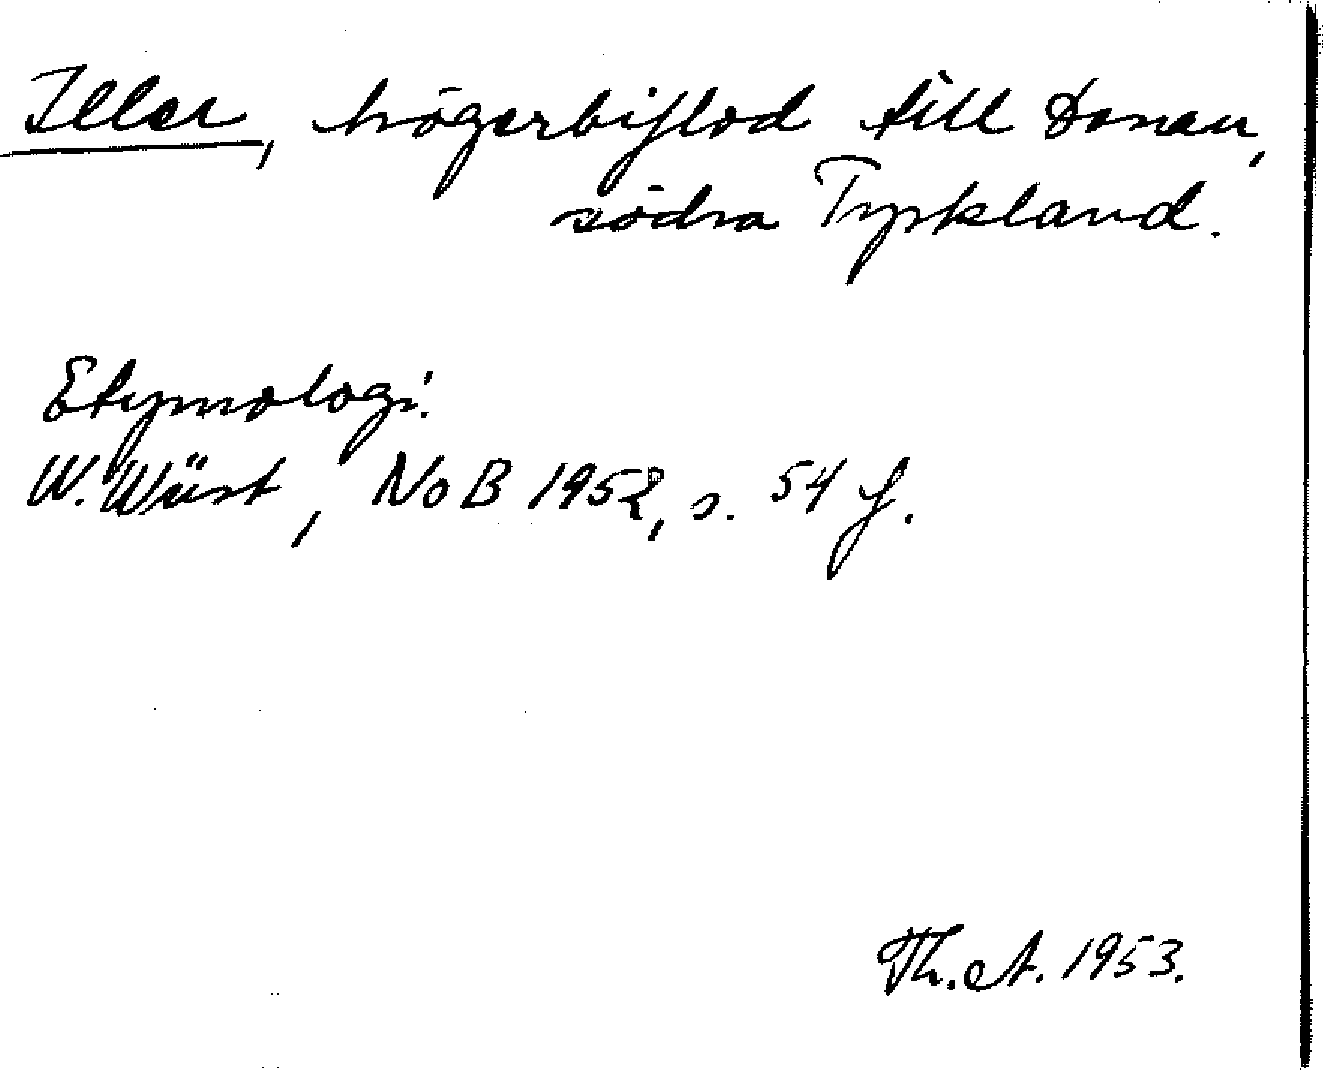 Iller, högerbiflod till Donau,
södra Tyskland.
Etymologi.
W. Wüst, NoB 1952, s. 54 f.
Th. A. 1953.